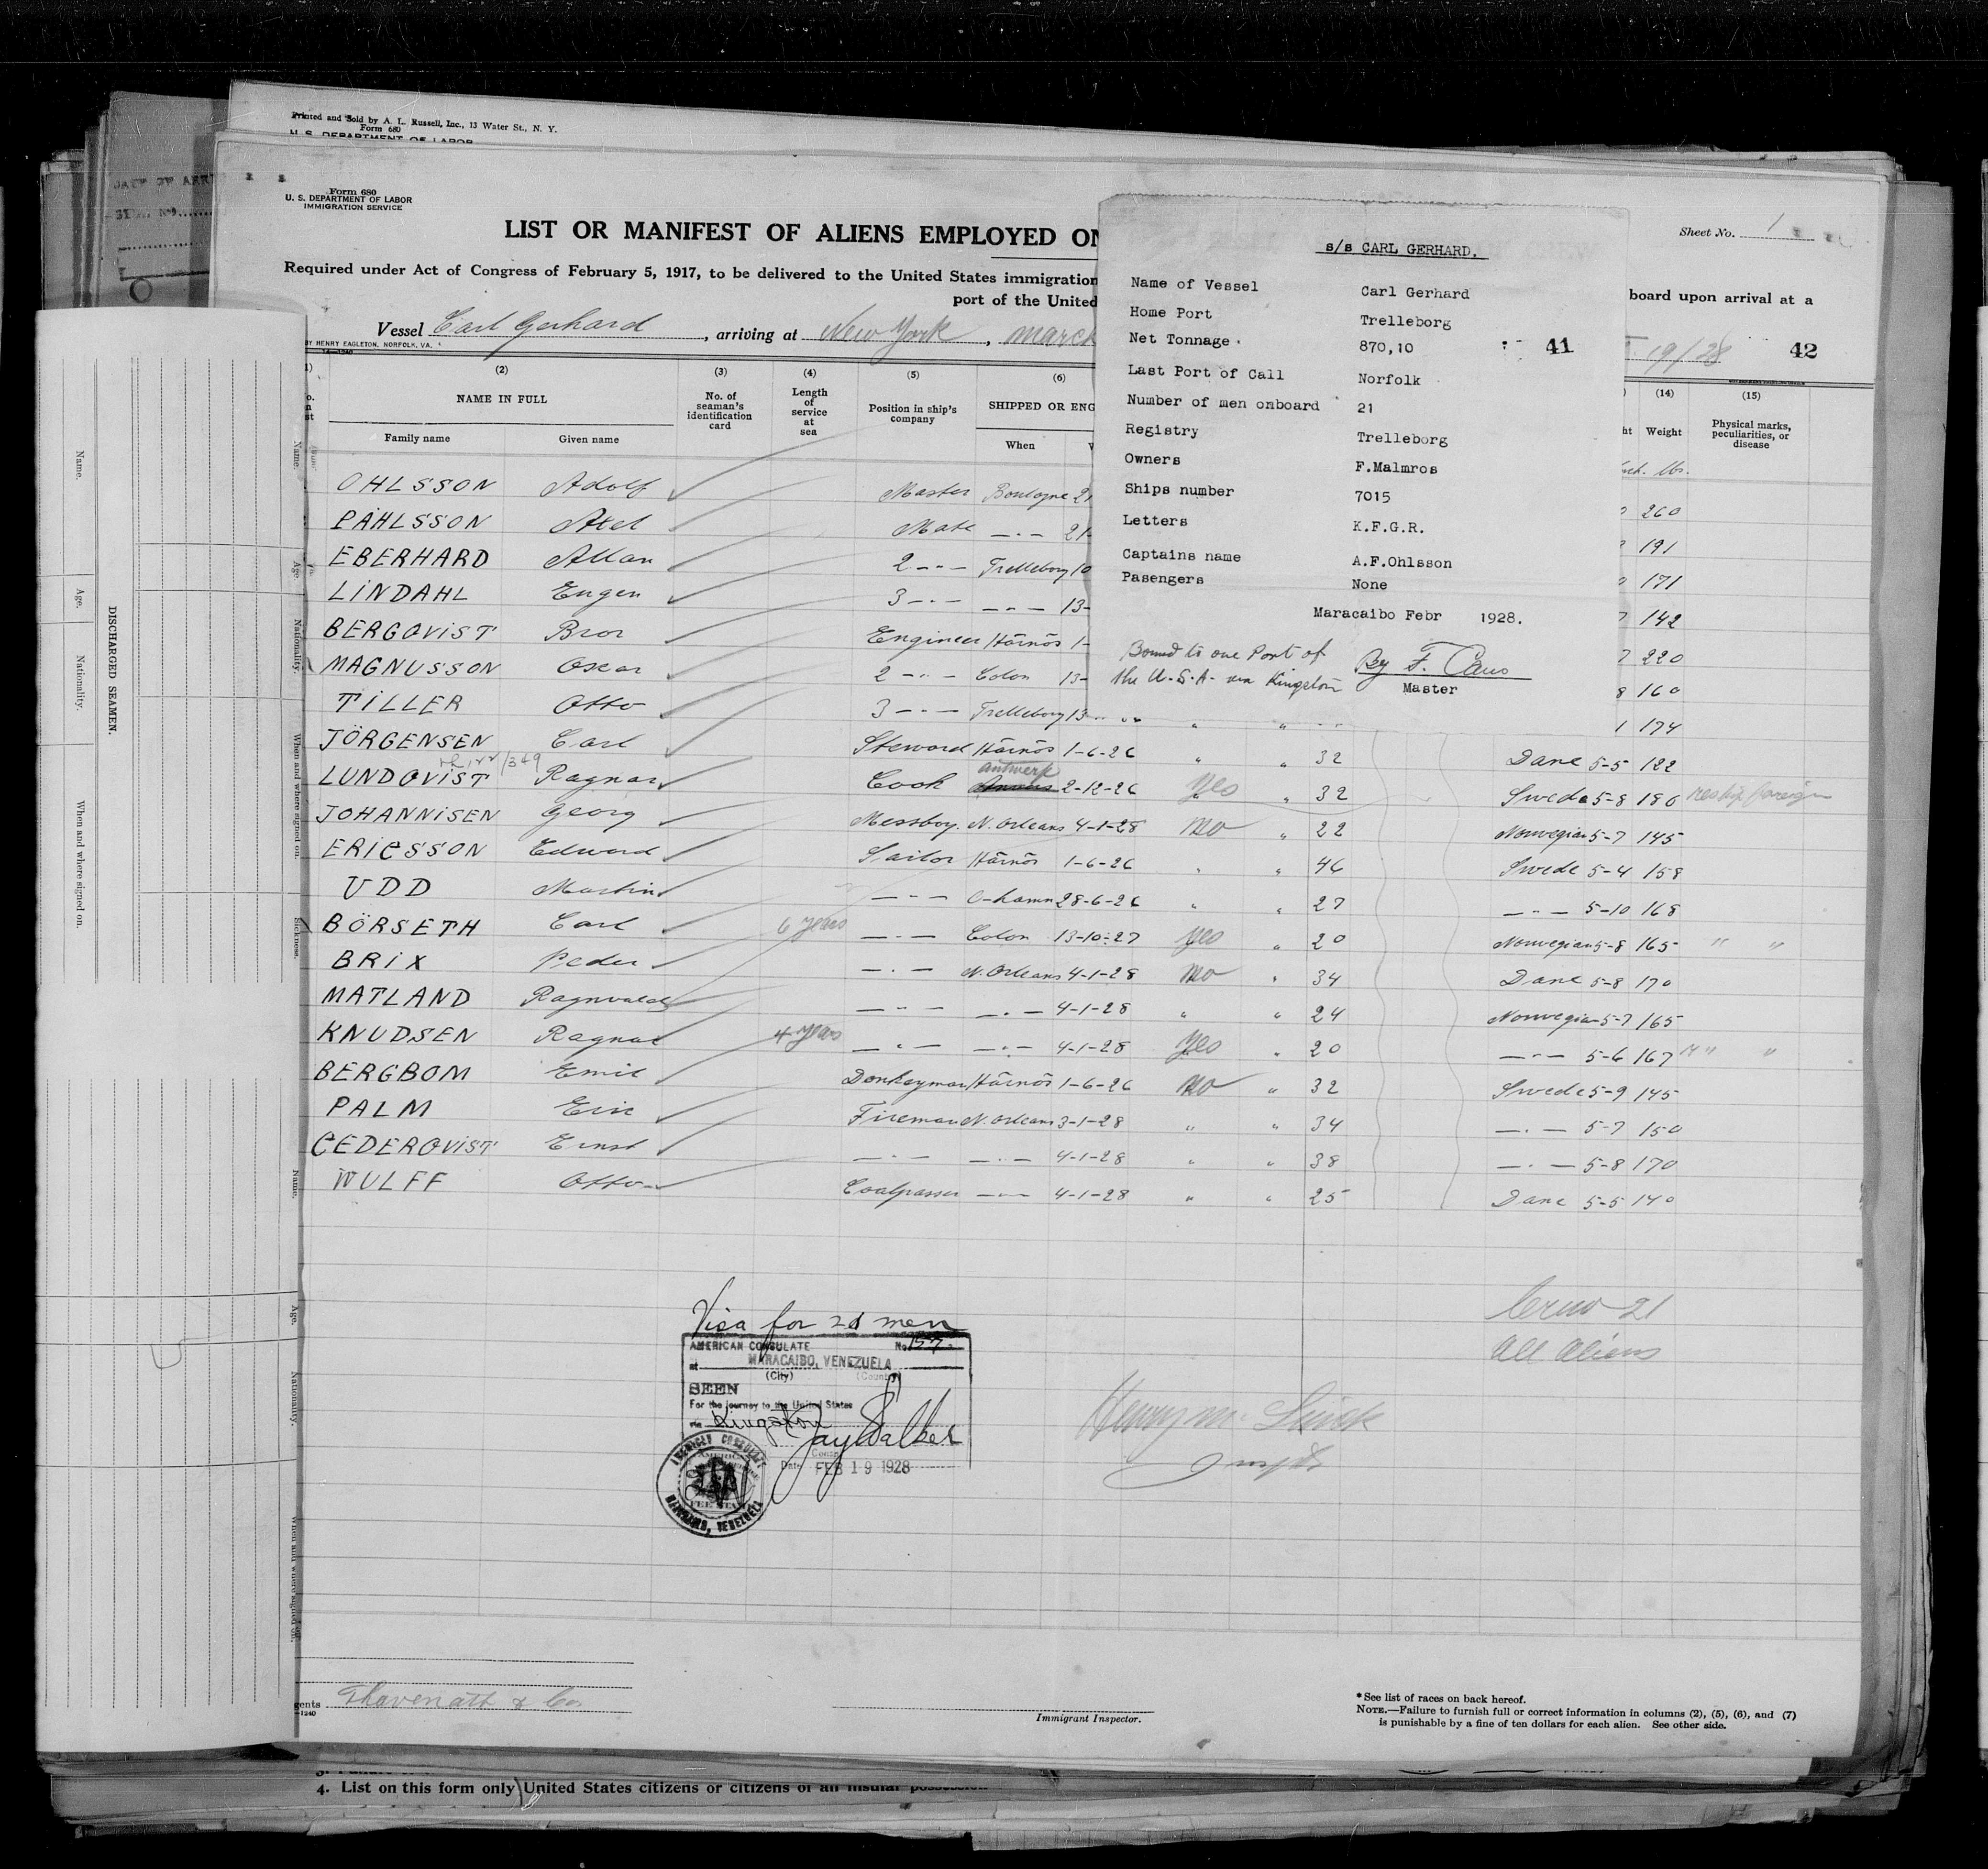 Printed and Sold by A. L. Russell, Inc., 13 Water St., N. Y.
Form 680
U. S. DEPARTMENT OF LABOR
Form 680
U. S. DEPARTMENT OF LABOR
IMMIGRATION SERVICE
LIST OR MANIFEST OF ALIENS EMPLOYED ON
Sheet No. 1
Required under Act of Congress of February 5, 1917, to be delivered to the United States immigration
board upon arrival at a
port of the United
Vessel Carl Gerhard, arriving at New York, March
19/28 42
BY HENRY EAGLETON, NORFOLK, VA.
14—1240
s/s CARL GERHARD.
Name of Vessel Carl Gerhard
Home Port Trelleborg
Net Tonnage 870,10 41
Last Port of Call Norfolk
Number of men onboard 21
Registry Trelleborg
Owners F.Malmros
Ships number 7015
Letters K.F.G.R.
Captains name A.F.Ohlsson
Pasengers None
Maracaibo Febr 1928.
Bound to one Port of
the U.S.A. via Kingston
By F.
Master
(2) (3) (4) (5) (6) (14) (15)
NAME IN FULL
Family name Given name
No. of seaman's identification card
Length of service at sea
Position in ship's company
SHIPPED OR ENG
When
Weight
Physical marks, peculiarities, or disease
lbs.
OHLSSON Adolf Master Boulogne 260
PÅHLSSON Axel Mate —·— 21- 191
EBERHARD Allan 2 —·— Trelleborg 10 171
LINDAHL Eugen 3 —·— —·— 13- 142
BERGQVIST Bror Engineer Härnös 1- 220
MAGNUSSON Oscar 2 —·— Colon 13- 160
TILLER Otto 3 —·— Trelleborg 13 174
JÖRGENSEN Carl Steward Härnös 1-6-26 " " 32 Dane 5-5 122
LUNDQVIST Ragnar Cook Antwerp 2-12-26 Yes " 32 Swede 5-8 180 reship foreign
JOHANNISEN Georg Messboy. N. Orleans 4-1-28 No " 22 Norwegian 5-7 145
ERICSSON Edward Sailor Härnös 1-6-26 " " 46 Swede 5-4 158
UDD Martin —·— O-hamn 28-6-26 " " 27 —·— 5-10 168
BÖRSETH Carl 6 years —·— Colon 13-10-27 Yes " 20 Norwegian 5-8 165 " "
BRIX Peder —·— N. Orleans 4-1-28 No " 34 Dane 5-8 170
MATLAND Ragnvald —·— —·— 4-1-28 " " 24 Norwegian 5-7 165
KNUDSEN Ragnar 4 years —·— —·— 4-1-28 Yes " 20 —·— 5-6 167 " "
BERGBOM Emil Donkeyman Härnös 1-6-26 No " 32 Swede 5-9 145
PALM Eric Fireman N. Orleans 3-1-28 " " 34 —·— 5-7 150
CEDERQVIST Ernst —·— —·— 4-1-28 " " 38 —·— 5-8 170
WULFF Otto Coalpasser —·— 4-1-28 " " 25 Dane 5-5 140
Crew 21
All Aliens
Visa for 21 men
AMERICAN CONSULATE No. 157
at MARACAIBO, VENEZUELA
(City) (Country)
SEEN
For the journey to the United States
via Kingston
Jay Walker
Date FEB 19 1928
AMERICAN CONSULATE
MARACAIBO, VENEZUELA
Immigrant Inspector.
* See list of races on back hereof.
NOTE.—Failure to furnish full or correct information in columns (2), (5), (6), and (7)
is punishable by a fine of ten dollars for each alien. See other side.
4. List on this form only United States citizens or citizens of an insular possession
DISCHARGED SEAMEN.
Name. Age. Nationality. When and where signed on.
Name. Age. Nationality. When and where signed on. Sickness.
Name. Age. Nationality. When and where signed on.